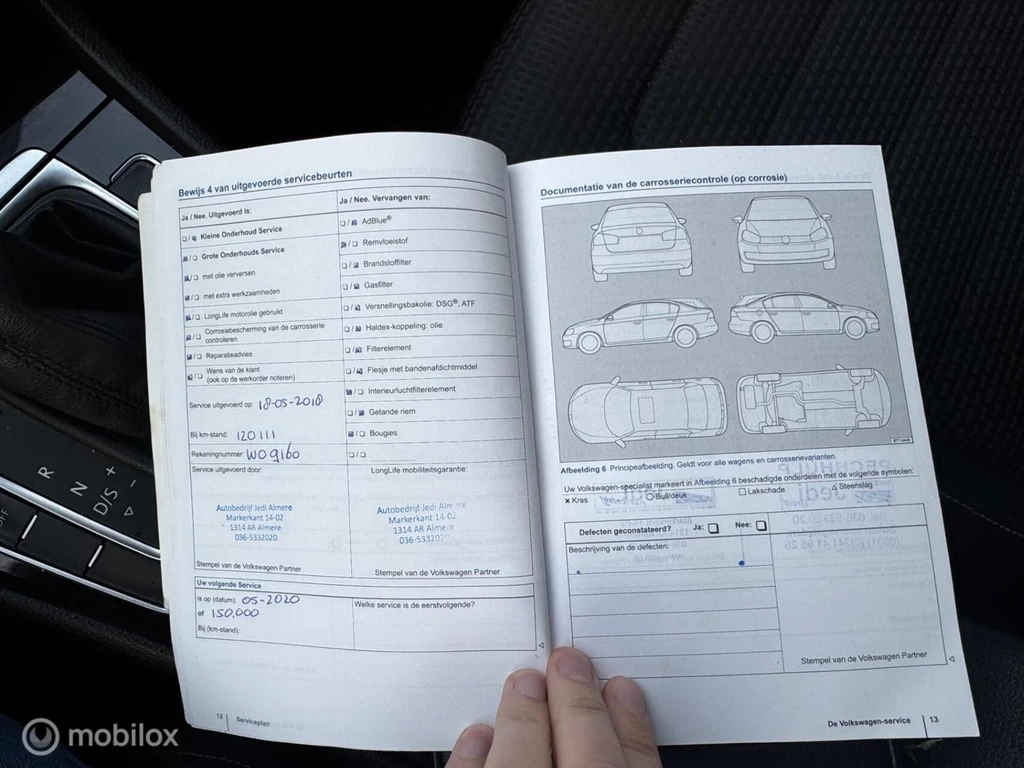 Bewijs 4 van uitgevoerde servicebeurten
Ja / Nee. Uitgevoerd is:
Kleine Onderhoud Service
Grote Onderhouds Service
met olie verversen
met extra werkzaamheden
LongLife motorolie gebruikt
Corrosiebescherming van de carrosserie
controleren
Reparatieadvies
Wens van de klant
(ook op de werkorder noteren)
Service uitgevoerd op: 18-05-2018
Bij km-stand: 120111
Rekeningnummer: W09160
Service uitgevoerd door:
Autobedrijf Jedi Almere
Markerkant 14-02
1314 AR Almere
036-5332020
Stempel van de Volkswagen Partner
Ja / Nee. Vervangen van:
AdBlue®
Remvloeistof
Brandstoffilter
Gasfilter
Versnellingsbakolie: DSG®, ATF
Haldex-koppeling: olie
Filterelement
Flesje met bandenafdichtmiddel
Interieurluchtfilterelement
Getande riem
Bougies
LongLife mobiliteitsgarantie:
Autobedrijf Jedi Almere
Markerkant 14-02
1314 AR Almere
036-5332020
Stempel van de Volkswagen Partner
Uw volgende Service
is op (datum): 05-2020
of 150.000
Bij (km-stand):
Welke service is de eerstvolgende?
12 Serviceplan
Documentatie van de carrosseriecontrole (op corrosie)
Afbeelding 6 Principeafbeelding. Geldt voor alle wagens en carrosserievarianten.
Uw Volkswagen-specialist markeert in Afbeelding 6 beschadigde onderdelen met de volgende symbolen:
× Kras ○ Buil/deuk □ Lakschade △ Steenslag
Defecten geconstateerd? Ja: Nee:
Beschrijving van de defecten:
Stempel van de Volkswagen Partner
De Volkswagen-service 13
R
N
D/S
+
−
OFF
mobilox